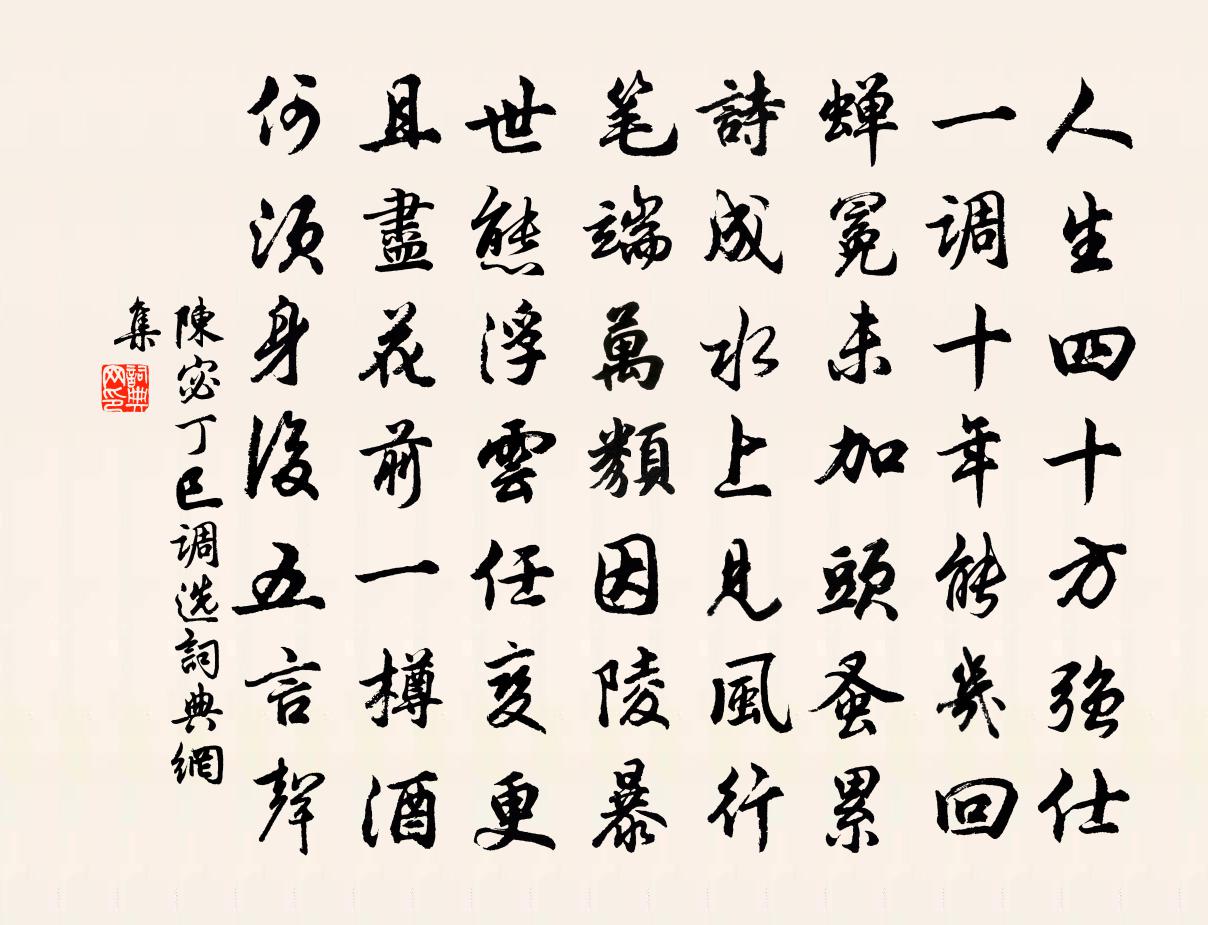 人生四十方強仕
一调十年能幾回
蝉冕未加頭蚤累
詩成水上見風行
笔端萬類因陵暴
世態浮雲任变更
且盡花前一樽酒
何须身後五言聲
陳宓丁巳调选詞典網
集
詞典
网印